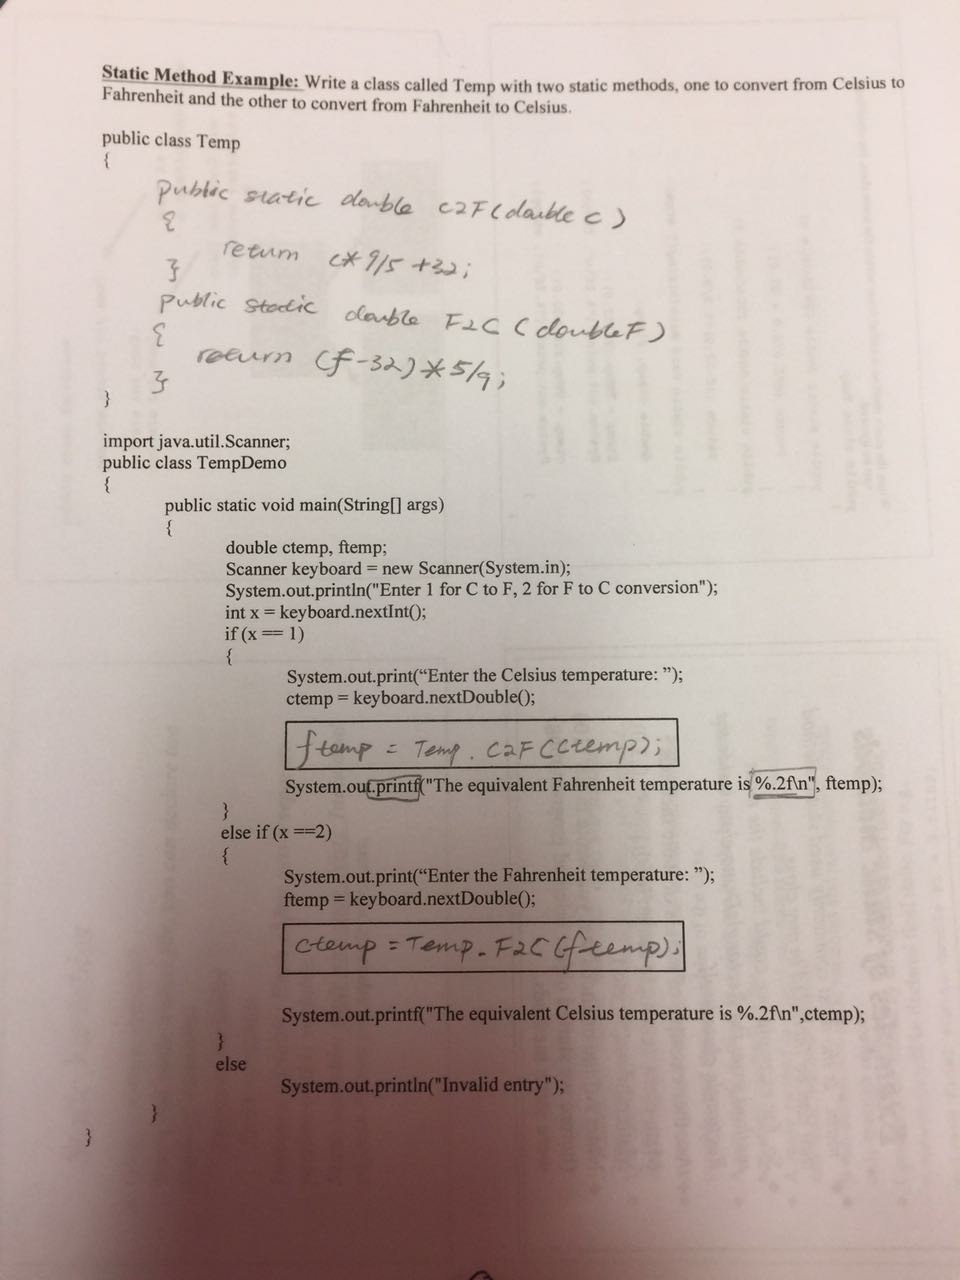 Static Method Example: Write a class called Temp with two static methods, one to convert from Celsius to
Fahrenheit and the other to convert from Fahrenheit to Celsius.
public class Temp
{
public static double C2F(double c)
{
return c*9/5 +32;
}
public static double F2C (double F)
{
return (f-32)*5/9;
}
}
import java.util.Scanner;
public class TempDemo
{
public static void main(String[] args)
{
double ctemp, ftemp;
Scanner keyboard = new Scanner(System.in);
System.out.println("Enter 1 for C to F, 2 for F to C conversion");
int x = keyboard.nextInt();
if (x == 1)
{
System.out.print(“Enter the Celsius temperature: ”);
ctemp = keyboard.nextDouble();
ftemp = Temp. C2F(Ctemp);
System.out.printf("The equivalent Fahrenheit temperature is %.2f\n", ftemp);
}
else if (x ==2)
{
System.out.print(“Enter the Fahrenheit temperature: ”);
ftemp = keyboard.nextDouble();
Ctemp = Temp. F2C (ftemp);
System.out.printf("The equivalent Celsius temperature is %.2f\n",ctemp);
}
else
System.out.println("Invalid entry");
}
}